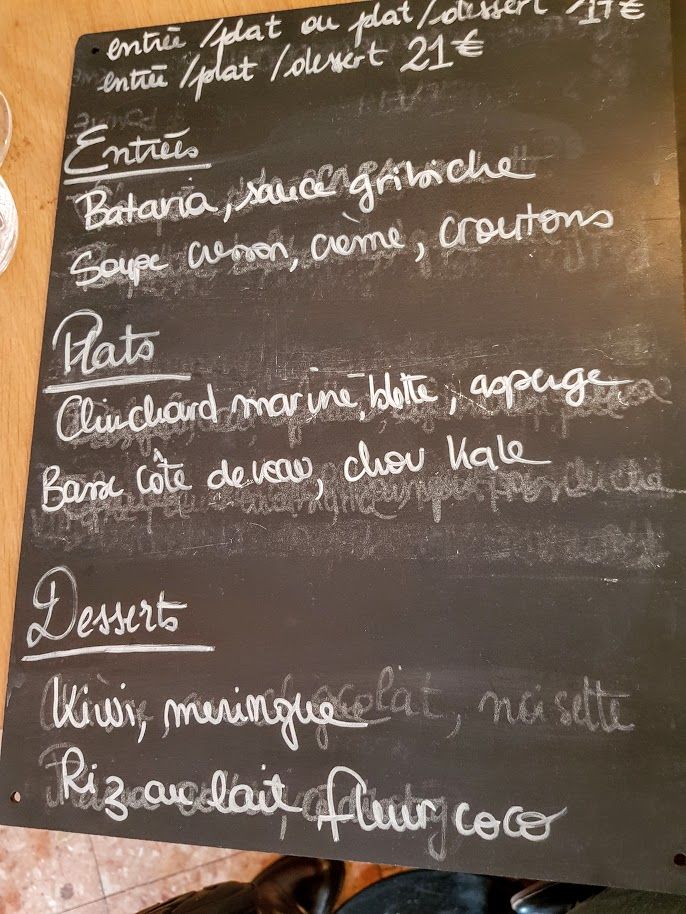 entrée / plat ou plat / dessert 17€
entrée / plat / dessert 21€
Entrées
Batavia, sauce gribiche
Soupe cresson, crème, croutons
Plats
Clinchard mariné, blette, asperge
Basse côte de veau, chou kale
Desserts
Kiwi, meringue
chocolat, noisette
Riz au lait fleur coco